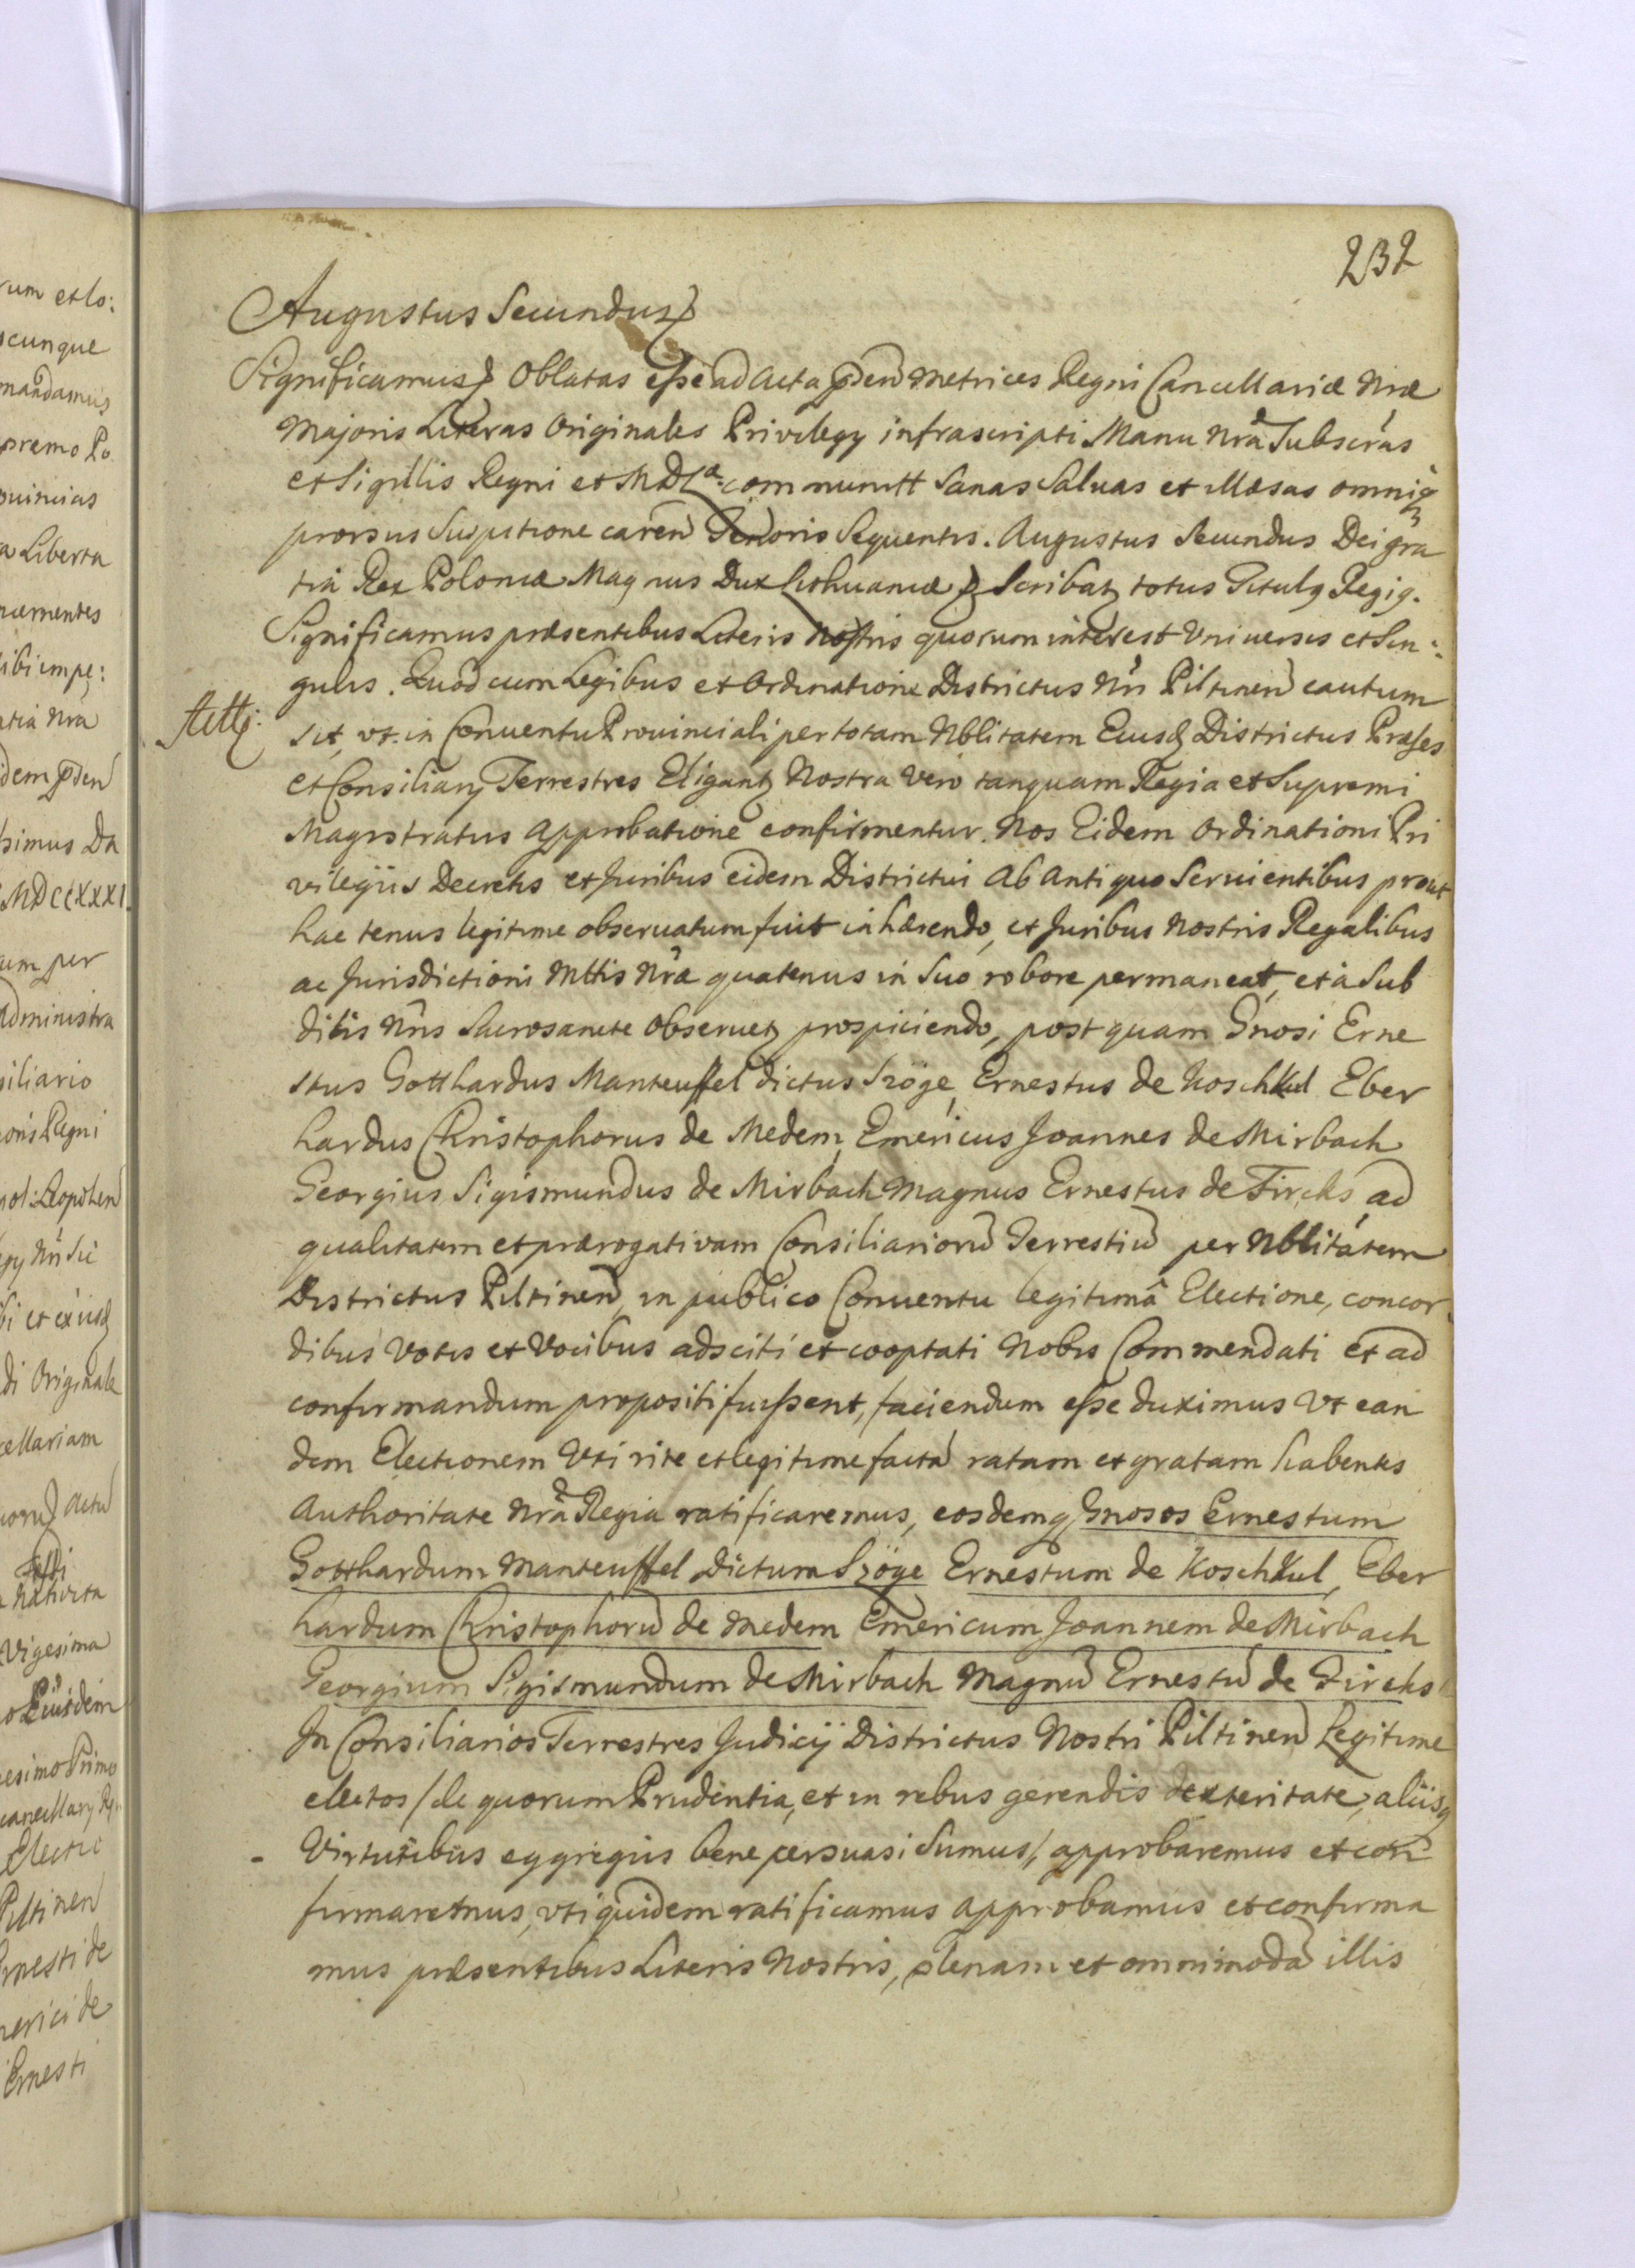 232
Augustus Secundus
Significamus Oblatas esse ad Acta pñden metrices Regni Cancellariæ Nræ
Majoris Literas Originales Privilegy infrascripti Manu Nrâ Subscras
et Sigillis Regni et M D L communitt Sanas Salvas et illæsas omniq
prorsus Suspitione caren Tenoris Sequentis. Augustus Secundus Dei gra
tiâ Rex Poloniæ Magnus Dux Lithuaniæ Scribatz totus Titulg Regig.
Significamus præsentibus Literis Nostris quorum interest Vniversis et Sin:
gulis. Quod cum Legibus et Ordinatione Districtus Nri Piltinen cautum
sit, vt in Conuentu Prouinciali per totam Nblitatem Eiusd Districtus Præses
et Consiliary Terrestres Eligantz Nostra Vero tanquam Regia et Supremi
Magistratus Approbatione confirmentur. Nos Eidem Ordinationi Pri
vilegiis Decretis et Juribus eidem Districtui Ab Antiquo Seruientibus prout
hac tenus legitime obseruatum fuit inhærendo, et Juribus Nostris Regalibus
ac Jurisdictioni Mttis Nræ quatenus in Suo robore permaneat, et a Sub
ditis Nris Sacrosancte Obseruetz prospiciendo, post quam Gnosi Erne
stus Gotthardus Manteuffel dictus Szöge Ernestus de Koschkul Eber
hardus Christophorus de Medem, Emericus Joannes de Mirbach
Georgius Sigismundus de Mirbach Magnus Ernestus de Fircks ad
qualitatem et prærogativam Consiliarioru Terrestiu per Nblitatem
Districtus Piltinen, in publico Conuentu legitimâ Electione, concor
dibus Votis et Vocibus adsciti et cooptati Nobis Commendati et ad
confirmandum propositi fuissent, faciendum esse duximus Vt ean
dem Electionem Vti rite et legitime facta ratam et gratam habentes
Authoritate Nrâ Regia ratificaremus, eosdemq Gnosos Ernestum
Gotthardum Manteuffel Dictum Szöge Ernestum de Koschkul, Eber
hardum Christophoru de Medem Emericum Joannem de Mirbach
Georgium Sigismundum de Mirbach Magnu Ernestu de Fircks
In Consiliarios Terrestres Judicij Districtus Nostri Piltinen Legitime
electos /de quorum Prudentia, et in rebus gerendis dexteritate, aliisq
Virtutibus eggregiis bene persuasi Sumus/, approbaremus et con
firmaremus, vti quidem ratificamus approbamus et confirma
mus præsentibus Literis Nostris, plenam et omnimoda illis